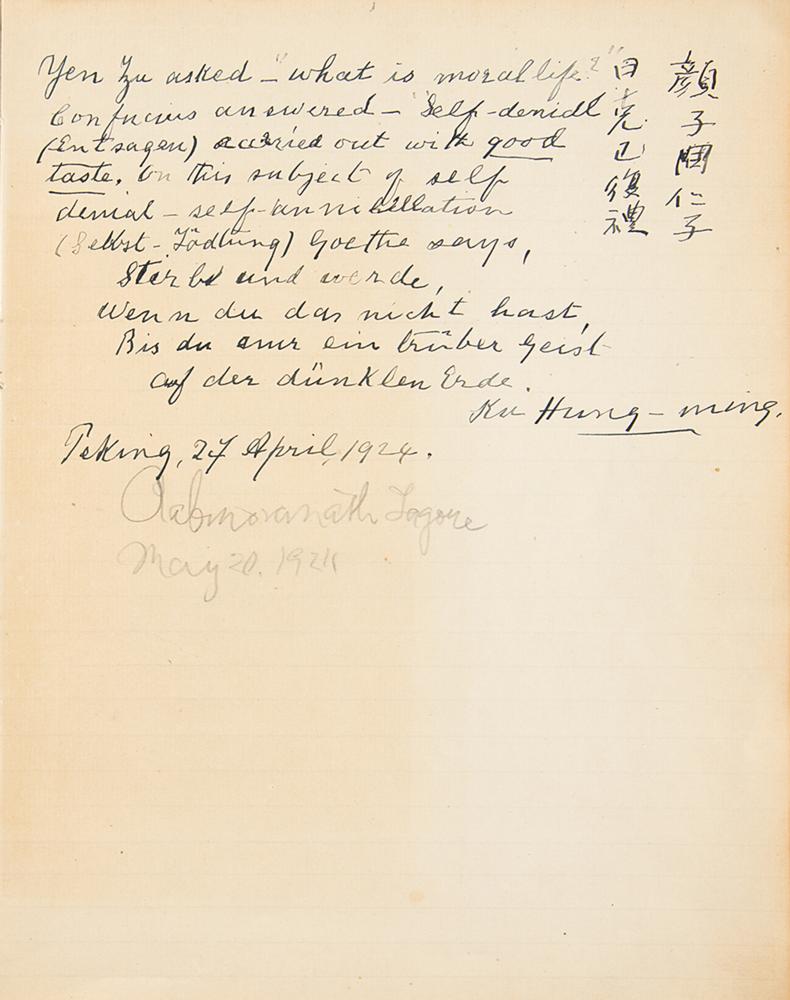 Yen Zu asked – "what is moral life?"
Confucius answered – "Self-denial
(Entsagen) carried out with good
taste. On this subject of self
denial – self-annihillation
(Selbst-Tödtung) Goethe says,
Sterbe und werde,
Wenn du das nicht hast,
Bis du nur ein trüber Geist
auf der dünklen Erde.
Ku Hung-ming.
Peking, 27 April, 1924.
Tagore
May 20. 1924
顏子問仁子
曰克己復禮